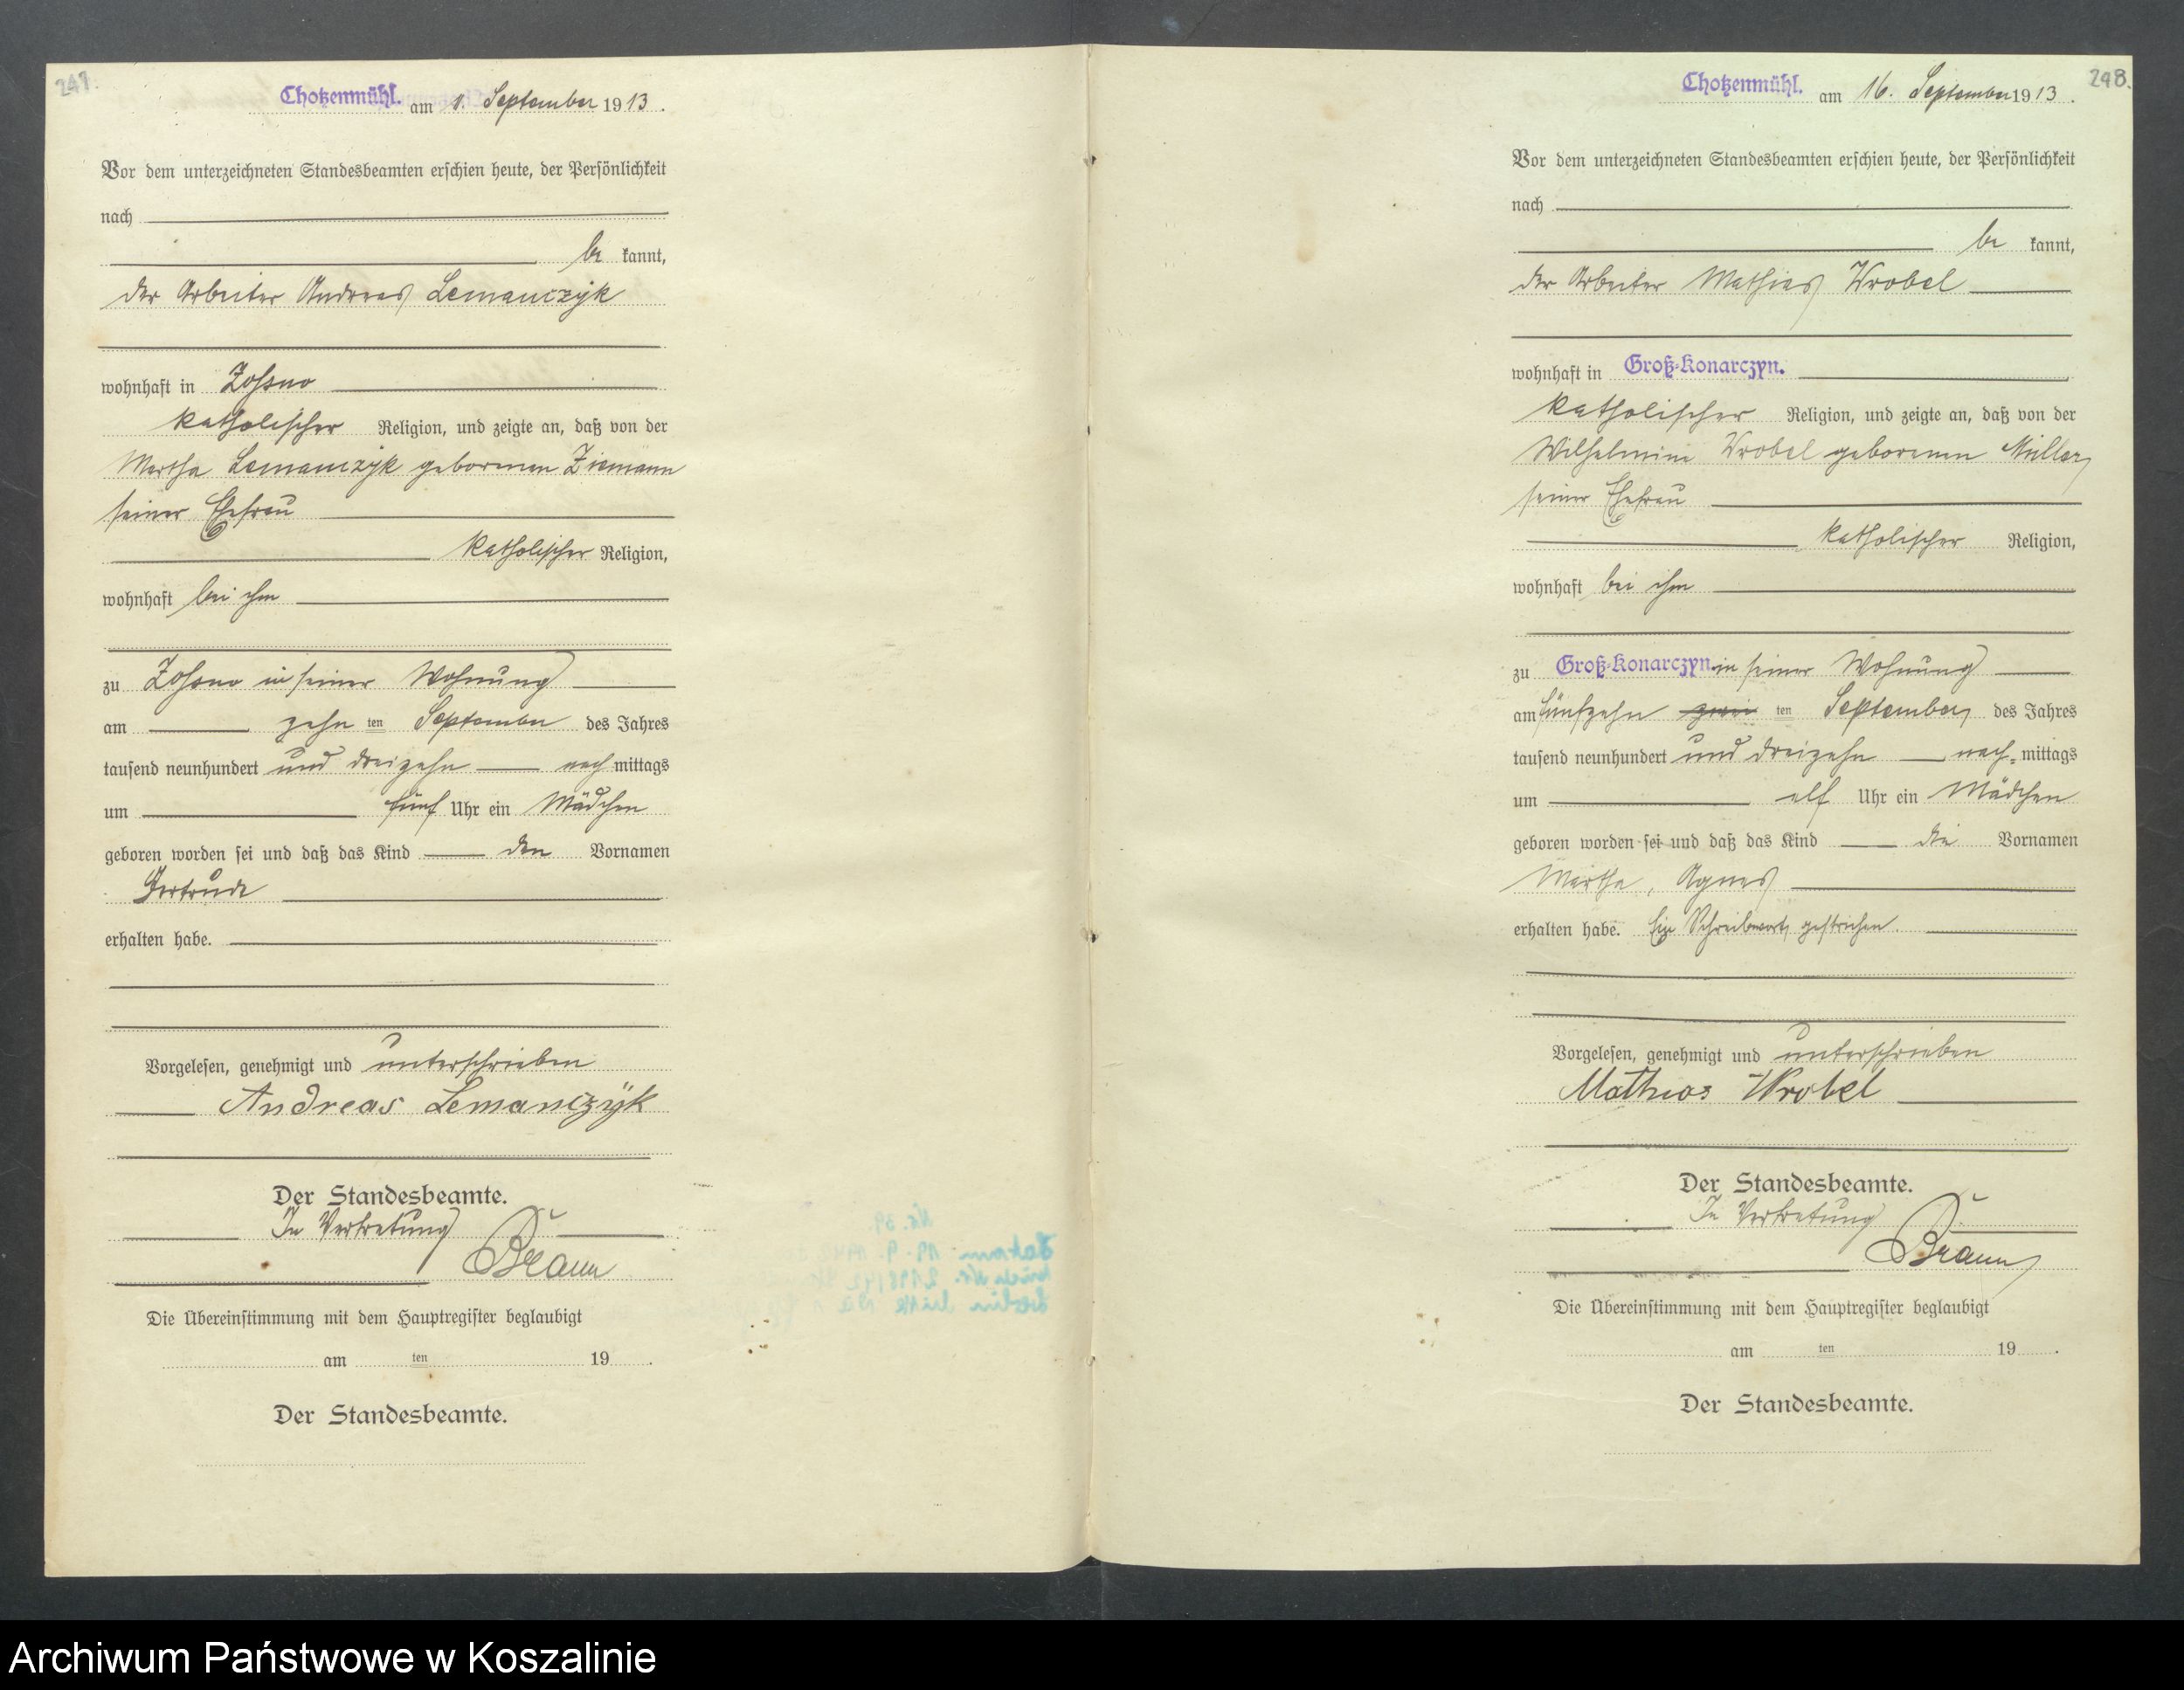 247.
Chotzenmühl. am 1. September 1913.
Vor dem unterzeichneten Standesbeamten erschien heute, der Persönlichkeit
nach
be kannt,
der Arbeiter Andreas Lemanczyk
wohnhaft in Zossno
katholischer Religion, und zeigte an, daß von der
Martha Lemanczyk geborenen Ziemann
seiner Ehefrau
katholischer Religion,
wohnhaft bei ihm
zu Zossno in seiner Wohnung
am zehn ten September des Jahres
tausend neunhundert und dreizehn nach mittags
um fünf Uhr ein Mädchen
geboren worden sei und daß das Kind den Vornamen
Gertrude
erhalten habe.
Vorgelesen, genehmigt und unterschrieben
Andreas Lemanczÿk
Der Standesbeamte.
In Vertretung
Braun
Die Übereinstimmung mit dem Hauptregister beglaubigt
am ten 19 .
Der Standesbeamte.
248.
Chotzenmühl. am 16. September 1913.
Vor dem unterzeichneten Standesbeamten erschien heute, der Persönlichkeit
nach
be kannt,
der Arbeiter Mathias Wrobel
wohnhaft in Groß-Konarczyn.
katholischer Religion, und zeigte an, daß von der
Wilhelmine Wrobel geborenen Müller,
seiner Ehefrau
katholischer Religion,
wohnhaft bei ihm
zu Groß-Konarczyn. in seiner Wohnung
am fünfzehn ten September des Jahres
tausend neunhundert und dreizehn nach- mittags
um elf Uhr ein Mädchen
geboren worden sei und daß das Kind die Vornamen
Martha, Agnes
erhalten habe. Ein Schreibwort gestrichen.
Vorgelesen, genehmigt und unterschrieben
Mathias Wrobel
Der Standesbeamte.
In Vertretung
Braun
Die Übereinstimmung mit dem Hauptregister beglaubigt
am ten 19 .
Der Standesbeamte.
Archiwum Państwowe w Koszalinie